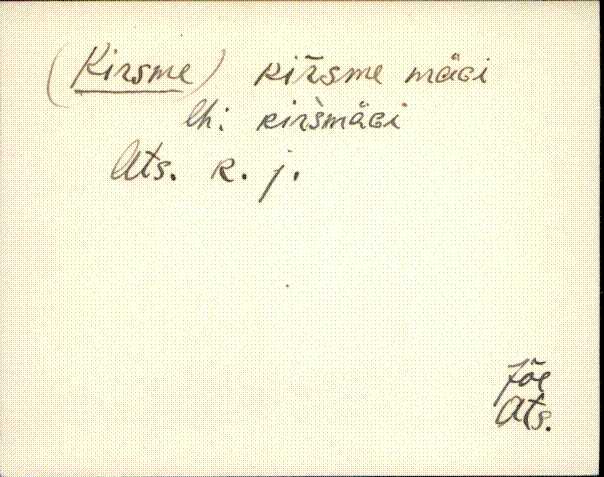 (Kirsme) kir̃sme mäGi
lh. kirs̀mäGi
Ats. k. j.
Jõe
Ats.